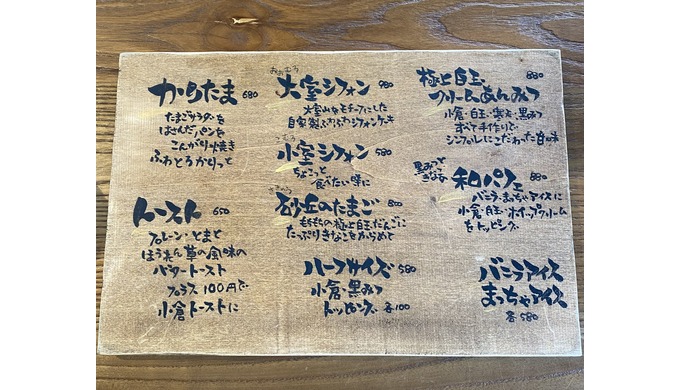 かりたま 680
たまごサラダを
はせんだパンを
こんがり焼き
ふわとろかりっと
トースト 650
プレーン・とまと
ほうれん草の風味の
バタートースト
プラス100円で
小倉トーストに
おおむろ
大室シフォン 980
大室山をモチーフにした
自家製ふわふわシフォンケーキ
こむろ
小室シフォン 580
ちょこっと
食べたい時に
さきゅう
砂丘のたまご 800
もちもちの極上白玉だんごに
たっぷりきなこをからめて
ハーフサイズ 580
小倉・黒みつ
トッピング 各100
極上白玉 880
クリームあんみつ
小倉・白玉・寒天・黒みつ
すべて手作りで
シンプルにこだわった甘味
黒みつと
きなこ
和パフェ 880
バニラ・まっちゃアイスに
小倉・白玉・ホイップクリーム
をトッピング
バニラアイス
まっちゃアイス
各580